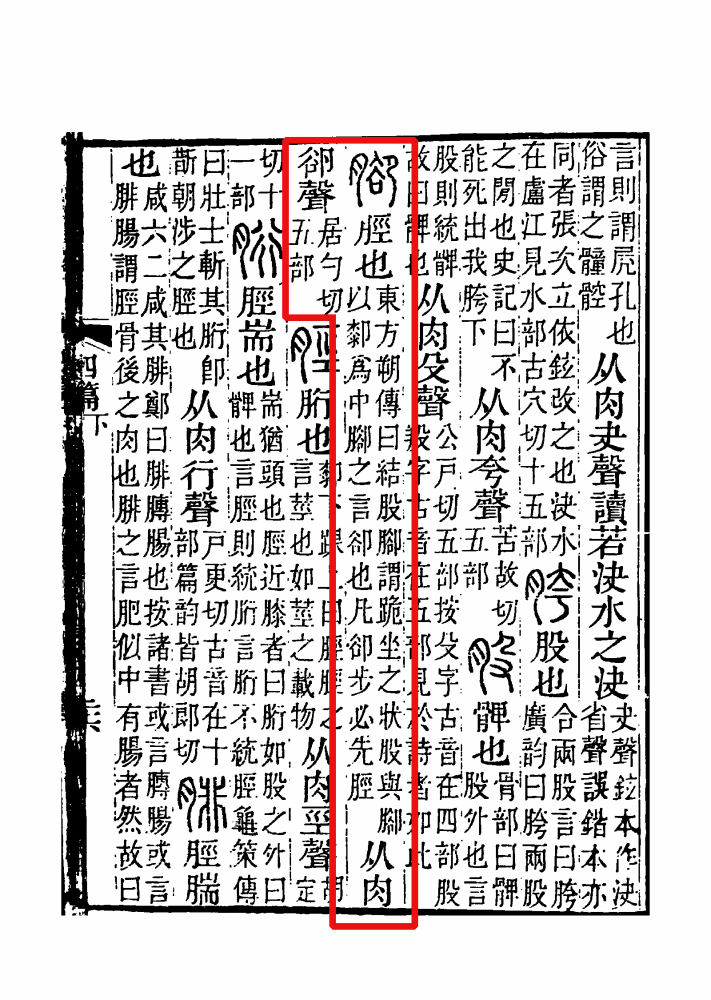 言則謂凥孔也
俗謂之
从肉夬聲讀若決水之決
夬聲鉉本作決
省聲誤鍇本亦
同者張次立依鉉改之也決水
在廬江見水部古穴切十五部
胯股也
合兩股言曰胯
廣韵曰胯兩股
之閒也史記曰不
能死出我胯下
从肉夸聲
苦故切
五部
股髀也
骨部曰髀
股外也言
股則統髀
故曰髀也
从肉殳聲
公戶切五部按殳字古音在四部股
羖字古音在五部見於詩者如此
腳脛也
東方朔傳曰結股腳謂跪坐之狀股與腳
以厀爲中腳之言卻也凡卻步必先脛
从肉
卻聲
居勺切
五部
脛胻也
厀下踝上曰脛脛之
言莖也如莖之載物
从肉巠聲
胡
定
切十
一部
胻脛耑也
耑猶頭也脛近膝者曰胻如股之外曰
髀也言脛則統胻言胻不統脛龜策傳
曰壯士斬其胻卽
斮朝涉之脛也
从肉行聲
戶更切古音在十
部篇韵皆胡郎切
腓脛腨
也
咸六二咸其腓鄭曰腓膞腸也按諸書或言膞腸或言
腓腸謂脛骨後之肉也腓之言肥似中有腸者然故曰
四篇下